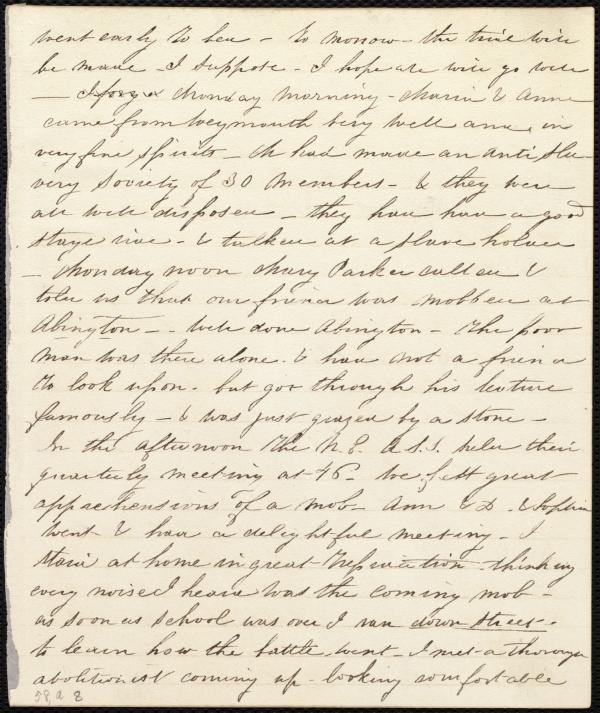 went early to bed - to morrow - the trial will
be made - I suppose - I hope all will go well
- Monday morning - Maria & Anne
came from Weymouth very well and, in
very fine spirits - M had made an Anti Sla-
very Society of 30 members - & they were
all well disposed - they had had a good
stage ride - & talked at a slave holder
- Monday noon Mary Parker called &
told us that our friend was mobbed at
Abington - - Well done Abington - The poor
man was there alone. & had not a friend
to look upon - but got through his lecture
famously - & was just grazed by a stone -
In the afternoon the N. E. A. S. S. held their
quarterly meeting at 46 - We felt great
apprehensions of a mob - Ann & D. & Sophia
went & had a delightful meeting - I
staid at home in great trepidation - thinking
every noise I heard was the coming mob -
as soon as school was over I ran down street -
to learn how the battle went - I met a thorough
abolitionist coming up - looking comfortable
58, a 8